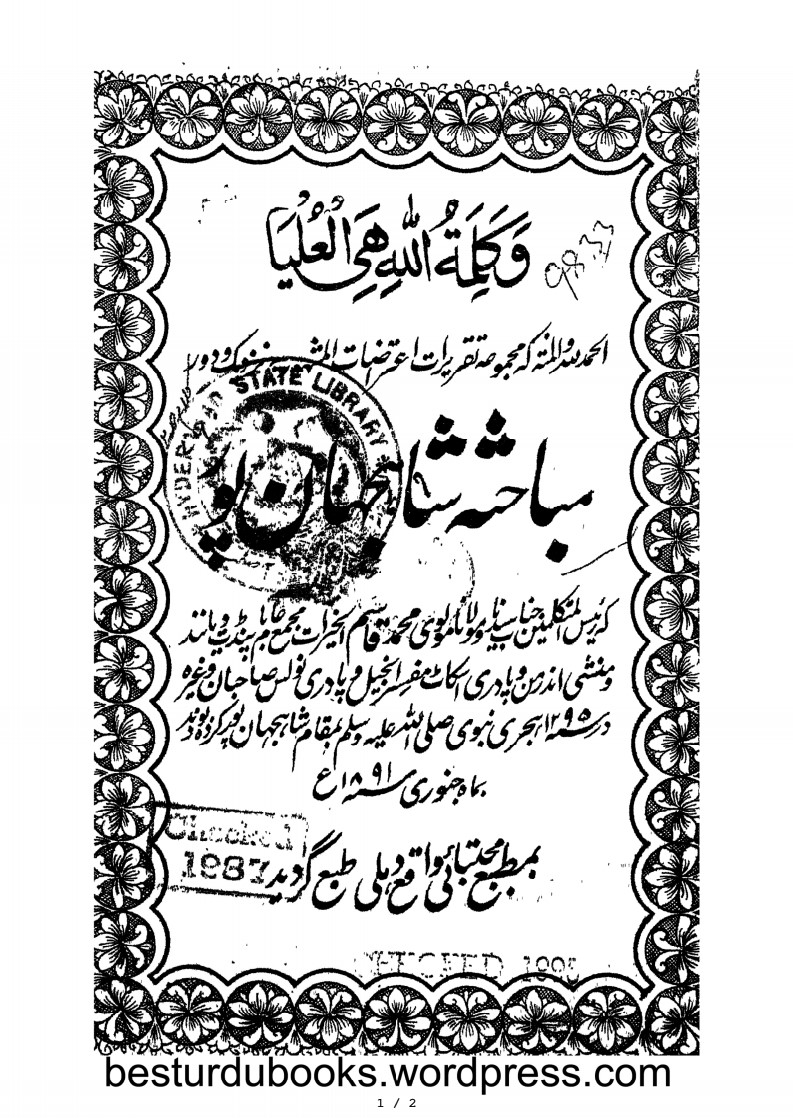 وَكَلِمَةُ اللّٰهِ هِيَ الْعُلْيَا
الحمد لله والمنة كہ مجموعہ تقریرات اعتراضات
STATE LIBRARY
مباحثہ شاہجہان پور
كہ رئیس المتکلمین جناب سیدنا و مولانا مولوی محمد قاسم الخیرات مجمع عام با پنڈت دیانند
و منشی اندرمن و پادری اسکاٹ مفسر انجیل و پادری نولس صاحبان وغیرہ
در سنہ ۱۲۹۵ ہجری نبوی صلی اللہ علیہ وسلم بمقام شاہجہان پور کردہ بودند
بماہ جنوری سنہ ۱۸۹۱ع
Checked
1987
بمطبع مجتبائی واقع دہلی طبع گردید
CHECKED 1995
besturdubooks.wordpress.com
1 / 2